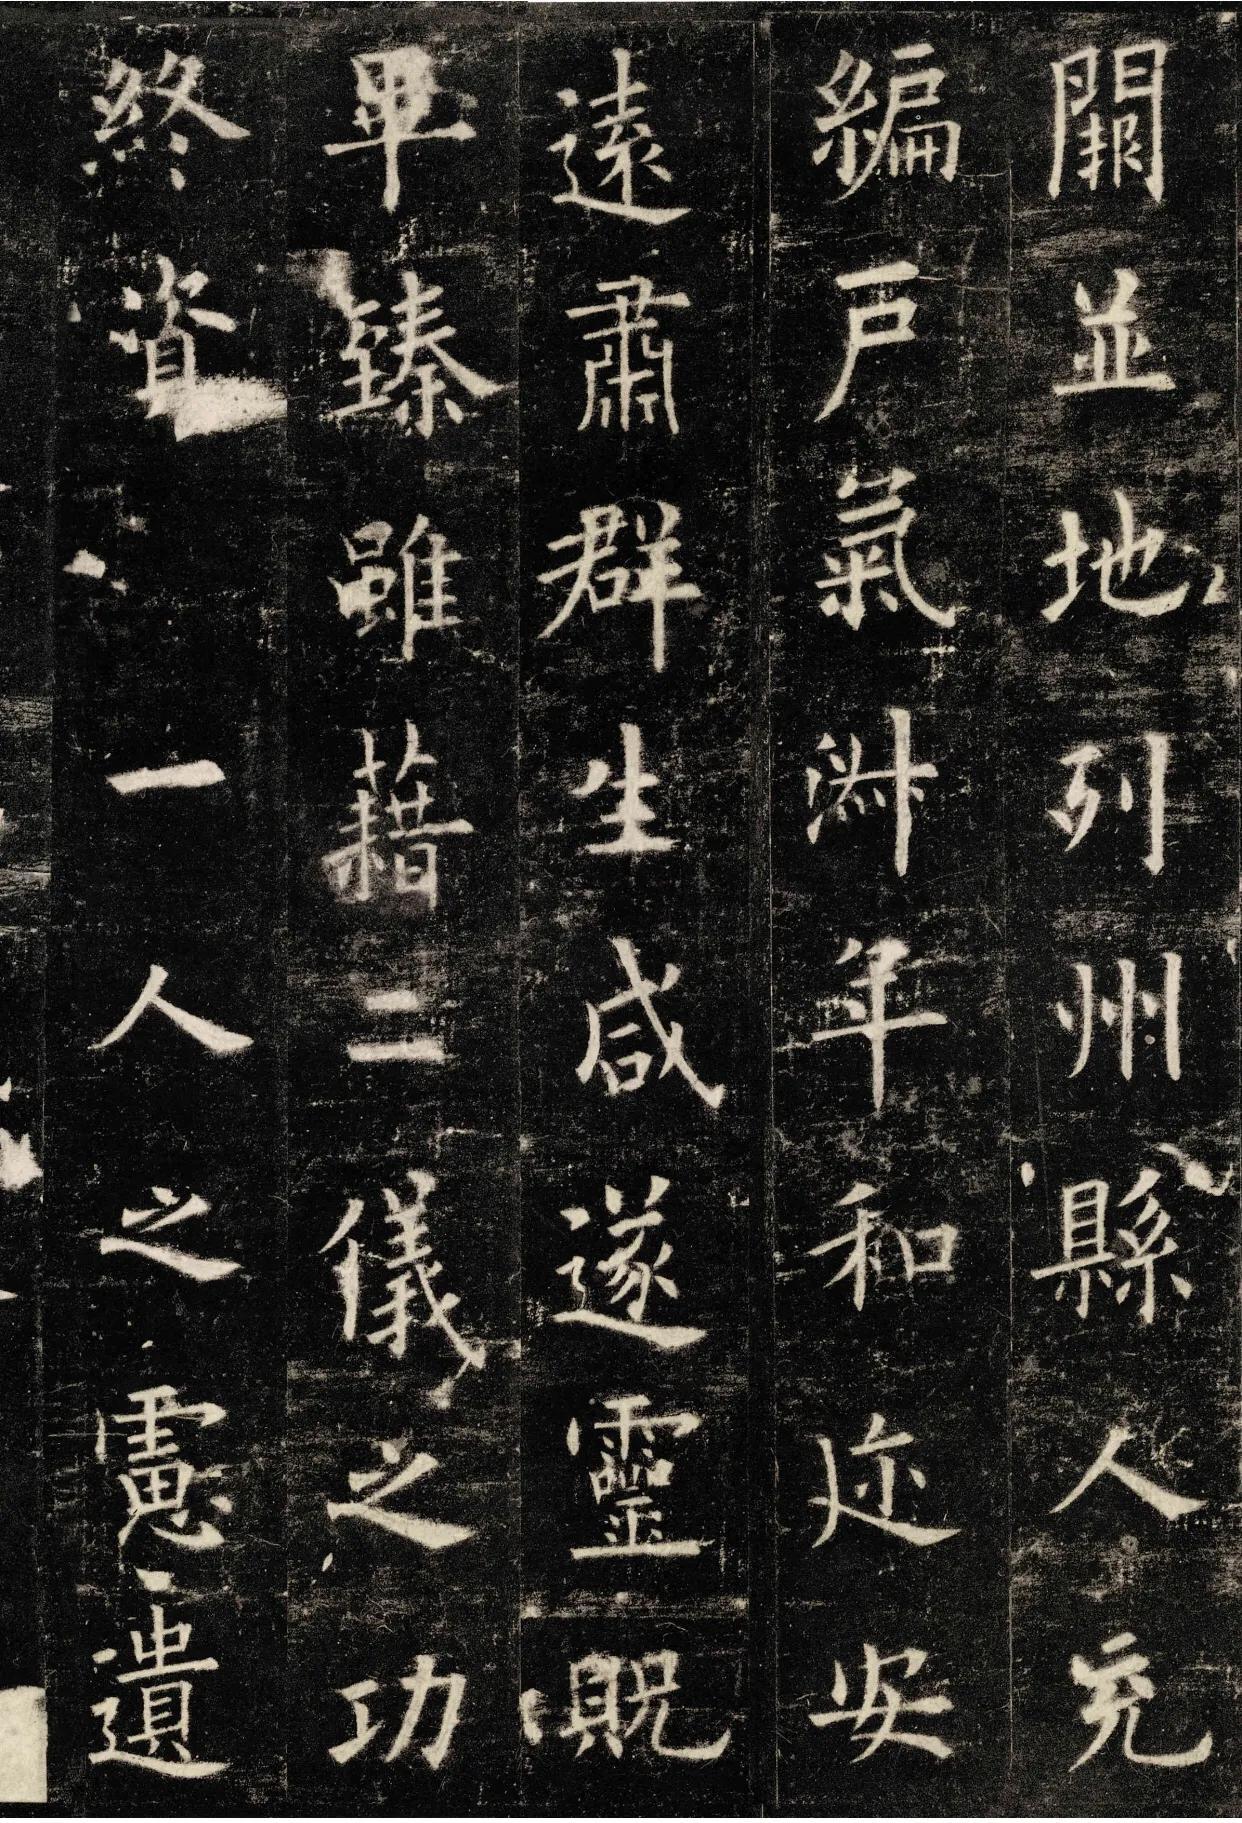 闕並地列州縣人充
編戶氣淑年和迩安
遠肅群生咸遂靈貺
畢臻雖藉二儀之功
終資一人之慮遺